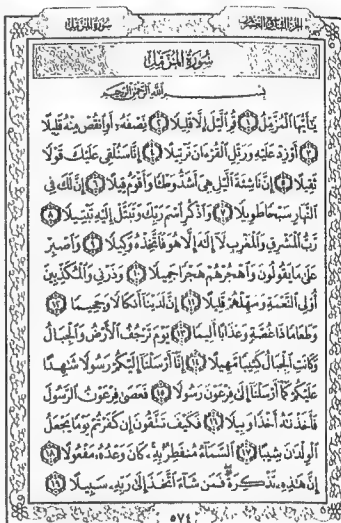 سورة المزمل
الجزء التاسع والعشرون
سورة المزمل
بسم الله الرحمن الرحيم
يَٰٓأَيُّهَا ٱلْمُزَّمِّلُ ١ قُمِ ٱلَّيْلَ إِلَّا قَلِيلًا ٢ نِّصْفَهُۥٓ أَوِ ٱنقُصْ مِنْهُ قَلِيلًا
٣ أَوْ زِدْ عَلَيْهِ وَرَتِّلِ ٱلْقُرْءَانَ تَرْتِيلًا ٤ إِنَّا سَنُلْقِى عَلَيْكَ قَوْلًا
ثَقِيلًا ٥ إِنَّ نَاشِئَةَ ٱلَّيْلِ هِىَ أَشَدُّ وَطْـًٔا وَأَقْوَمُ قِيلًا ٦ إِنَّ لَكَ فِى
ٱلنَّهَارِ سَبْحًا طَوِيلًا ٧ وَٱذْكُرِ ٱسْمَ رَبِّكَ وَتَبَتَّلْ إِلَيْهِ تَبْتِيلًا ٨
رَّبُّ ٱلْمَشْرِقِ وَٱلْمَغْرِبِ لَآ إِلَٰهَ إِلَّا هُوَ فَٱتَّخِذْهُ وَكِيلًا ٩ وَٱصْبِرْ
عَلَىٰ مَا يَقُولُونَ وَٱهْجُرْهُمْ هَجْرًا جَمِيلًا ١٠ وَذَرْنِى وَٱلْمُكَذِّبِينَ
أُو۟لِى ٱلنَّعْمَةِ وَمَهِّلْهُمْ قَلِيلًا ١١ إِنَّ لَدَيْنَآ أَنكَالًا وَجَحِيمًا ١٢
وَطَعَامًا ذَا غُصَّةٍ وَعَذَابًا أَلِيمًا ١٣ يَوْمَ تَرْجُفُ ٱلْأَرْضُ وَٱلْجِبَالُ
وَكَانَتِ ٱلْجِبَالُ كَثِيبًا مَّهِيلًا ١٤ إِنَّآ أَرْسَلْنَآ إِلَيْكُمْ رَسُولًا شَٰهِدًا
عَلَيْكُمْ كَمَآ أَرْسَلْنَآ إِلَىٰ فِرْعَوْنَ رَسُولًا ١٥ فَعَصَىٰ فِرْعَوْنُ ٱلرَّسُولَ
فَأَخَذْنَٰهُ أَخْذًا وَبِيلًا ١٦ فَكَيْفَ تَتَّقُونَ إِن كَفَرْتُمْ يَوْمًا يَجْعَلُ
ٱلْوِلْدَٰنَ شِيبًا ١٧ ٱلسَّمَآءُ مُنفَطِرٌۢ بِهِۦ كَانَ وَعْدُهُۥ مَفْعُولًا ١٨
إِنَّ هَٰذِهِۦ تَذْكِرَةٌ فَمَن شَآءَ ٱتَّخَذَ إِلَىٰ رَبِّهِۦ سَبِيلًا ١٩
٥٧٤